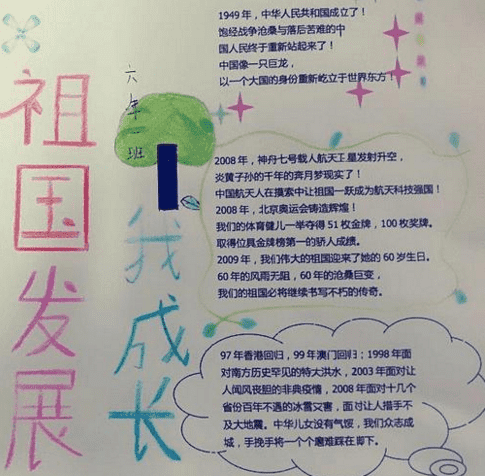 祖国发展
我成长
六年一班
1949年，中华人民共和国成立了！
饱经战争沧桑与落后苦难的中
国人民终于重新站起来了！
中国像一只巨龙，
以一个大国的身份重新屹立于世界东方！
2008年，神舟七号载人航天卫星发射升空，
炎黄子孙的千年的奔月梦现实了！
中国航天人在摸索中让祖国一跃成为航天科技强国！
2008年，北京奥运会铸造辉煌！
我们的体育健儿一举夺得51枚金牌，100枚奖牌。
取得位具金牌榜第一的骄人成绩。
2009年，我们伟大的祖国迎来了她的60岁生日。
60年的风雨无阻，60年的沧桑巨变，
我们的祖国必将继续书写不朽的传奇。
97年香港回归，99年澳门回归；1998年面
对南方历史罕见的特大洪水，2003年面对让
人闻风丧胆的非典疫情，2008年面对十几个
省份百年不遇的冰雪灾害，面对让人措手不
及大地震。中华儿女没有气馁，我们众志成
城，手挽手将一个个磨难踩在脚下。